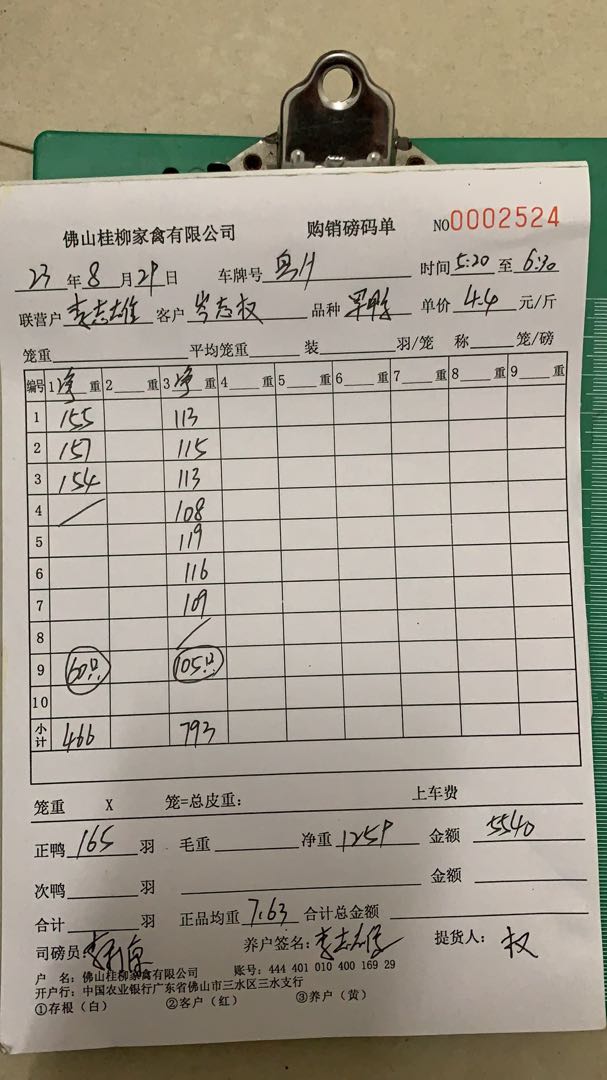 佛山桂柳家禽有限公司 购销磅码单 NO0002524
23 年 8 月 29 日 车牌号 时间 5:20 至 6:30
联营户 李志雄 客户 岑志权 品种 单价 4.4 元/斤
笼重 平均笼重 装 羽/笼 称 笼/磅
编号 1 净 重 2 重 3 净 重 4 重 5 重 6 重 7 重 8 重 9 重
1 155 113
2 157 115
3 154 113
4 / 108
5 119
6 116
7 109
8 /
9 60只 105只
10
小计 466 793
笼重 X 笼=总皮重: 上车费
正鸭 165 羽 毛重 净重 1259 金额 5540
次鸭 羽 金额
合计 羽 正品均重 7.63 合计总金额
司磅员: 养户签名: 李志雄 提货人: 权
户 名: 佛山桂柳家禽有限公司 账号: 444 401 010 400 169 29
开户行: 中国农业银行广东省佛山市三水区三水支行
①存根(白) ②客户(红) ③养户(黄)